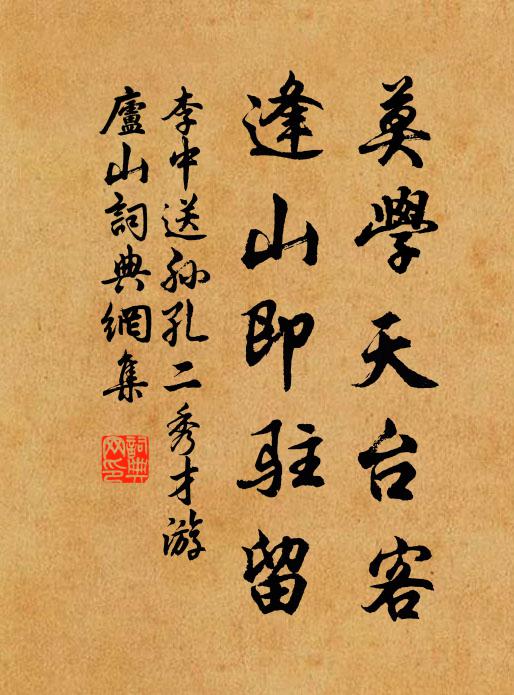 莫學天台客
逢山即駐留
李中送孫孔二秀才游
廬山詞典網集
詞典网印